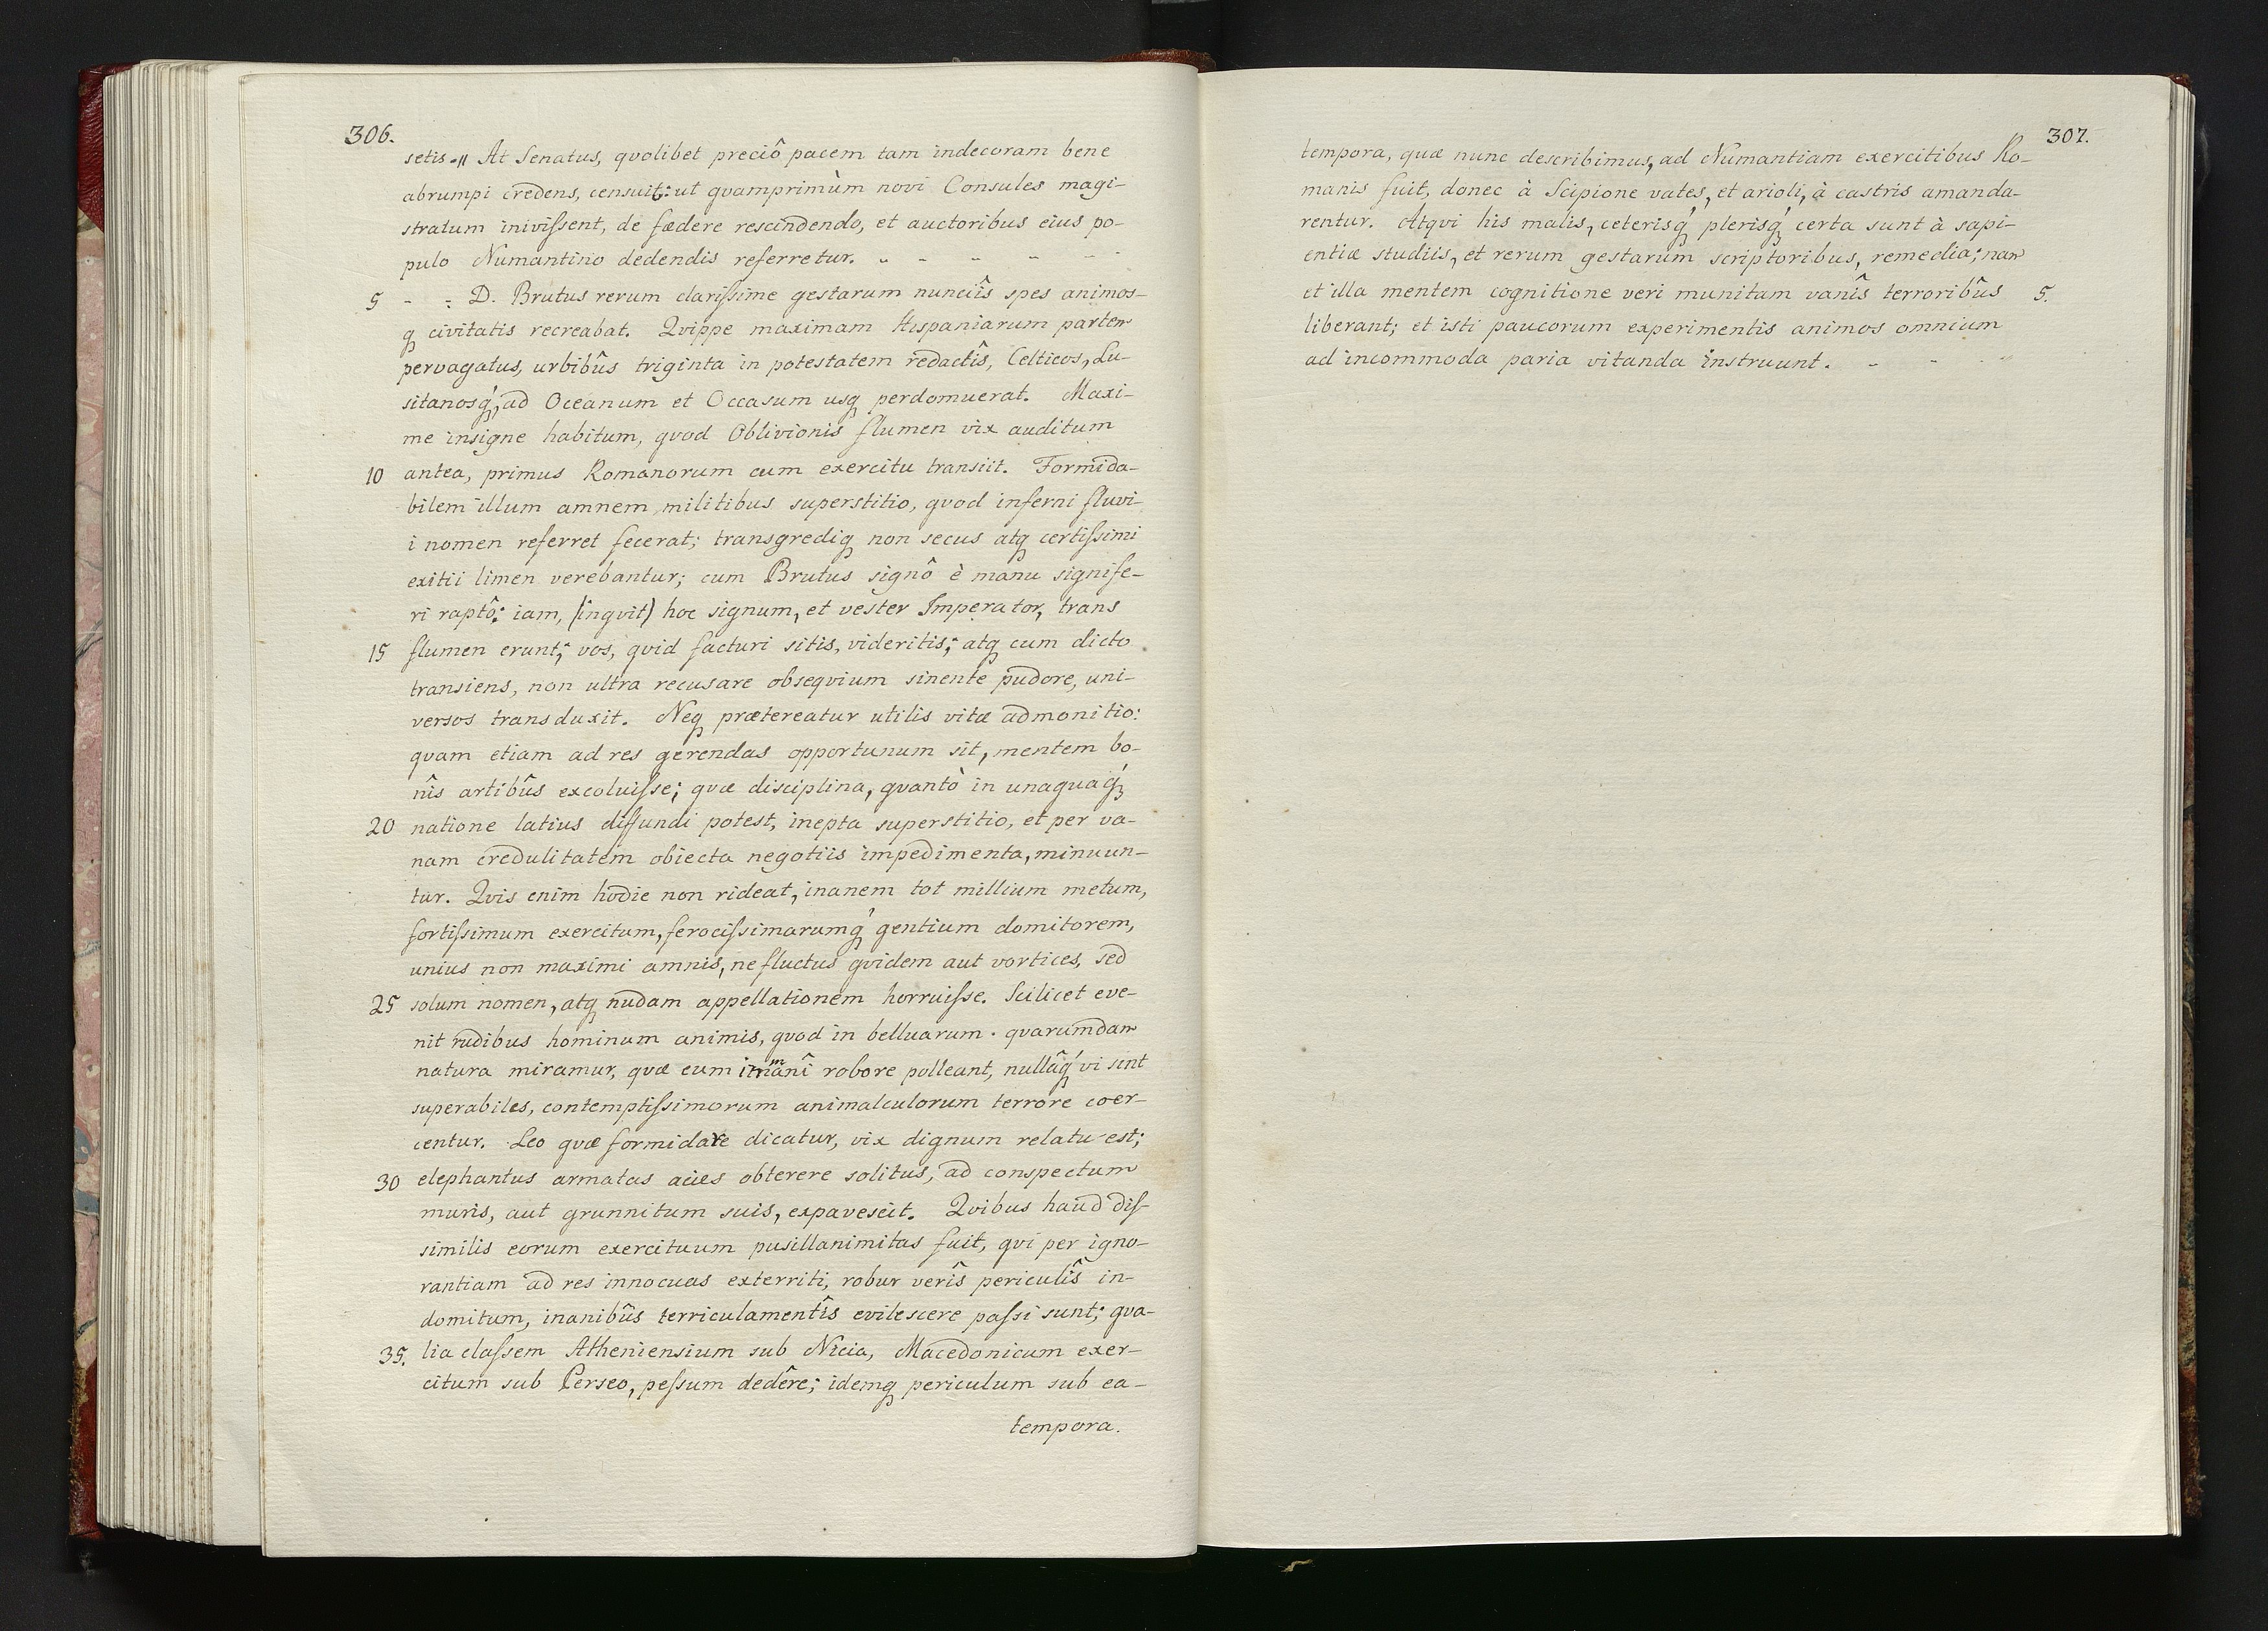 306.
setis." At Senatus, qvolibet preciô pacem tam indecoram bene
abrumpi credens, censuit: ut qvamprimùm novi Consules magi-
stratum inivissent, de fædere rescindendo, et auctoribus eius po-
pulo Numantino dedendis referretur. - - - - - -
5 - - D. Brutus rerum clarissime gestarum nunciîs spes animos-
q́ꝫ civitatis recreabat. Qvippe maximam Hispaniarum partem
pervagatus, urbibûs triginta in potestatem redactîs, Celticos, Lu-
sitanosq́ꝫ, ad Oceanum et Occasum usqꝫ perdomuerat. Maxi-
me insigne habitum, qvod Oblivionis flumen vix auditum
10 antea, primus Romanorum cum exercitu transiit. Formida-
bilem illum amnem militibus superstitio, qvod inferni fluvi-
i nomen referret fecerat; transgrediqꝫ non secus atqꝫ certissimi
exitii limen verebantur; cum Brutus signô è manu signife-
ri raptô: iam, (inqvit) hoc signum, et vester Imperator, trans
15 flumen erunt; vos, qvid facturi sitis, videritis; atqꝫ cum dicto
transiens, non ultra recusare obseqvium sinente pudore, uni-
versos transduxit. Neqꝫ prætereatur utilis vitæ admonitio:
qvam etiam ad res gerendas opportunum sit, mentem bo-
nîs artibûs excoluisse; qvæ disciplina, qvantò in unaquaq́ꝫ
20 natione latius diffundi potest, inepta superstitio, et per va-
nam credulitatem obiecta negotiis impedimenta, minuun-
tur. Qvis enim hodie non rideat, inanem tot millium metum,
fortissimum exercitum, ferocissimarumq́ꝫ gentium domitorem,
unius non maximi amnis, ne fluctus qvidem aut vortices, sed
25 solum nomen, atqꝫ nudam appellationem horruisse. Scilicet eve-
nit rudibus hominum animis, qvod in belluarum qvarumdam
natura miramur, qvæ cum immanî robore polleant, nullâq́ꝫ vi sint
superabiles, contemptissimorum animalculorum terrore coer-
centur. Leo qvæ formidare dicatur, vix dignum relatu est;
30 elephantus armatas acies obterere solitus, ad conspectum
muris, aut grunnitum suis, expavescit. Qvibus haud dis-
similis eorum exercituum pusillanimitas fuit, qvi per igno-
rantiam ad res innocuas exterriti, robur verîs periculîs in-
domitum, inanibûs terriculamentîs evilescere passi sunt; qva-
35. lia classem Atheniensium sub Nicia, Macedonicum exer-
citum sub Perseo, pessum dedêre; idemqꝫ periculum sub ea-
tempora.
307.
tempora, quæ nunc describimus, ad Numantiam exercitibus Ro-
manis fuit, donec à Scipione vates, et arioli, à castris amanda-
rentur. Atqvi his malis, ceterisq́ꝫ plerisq́ꝫ certa sunt à sapi-
entiæ studiis, et rerum gestarum scriptoribus, remedia; nam
et illa mentem cognitione veri munitam vanîs terroribûs 5.
liberant; et isti paucorum experimentis animos omnium
ad incommoda paria vitanda instruunt. - - -